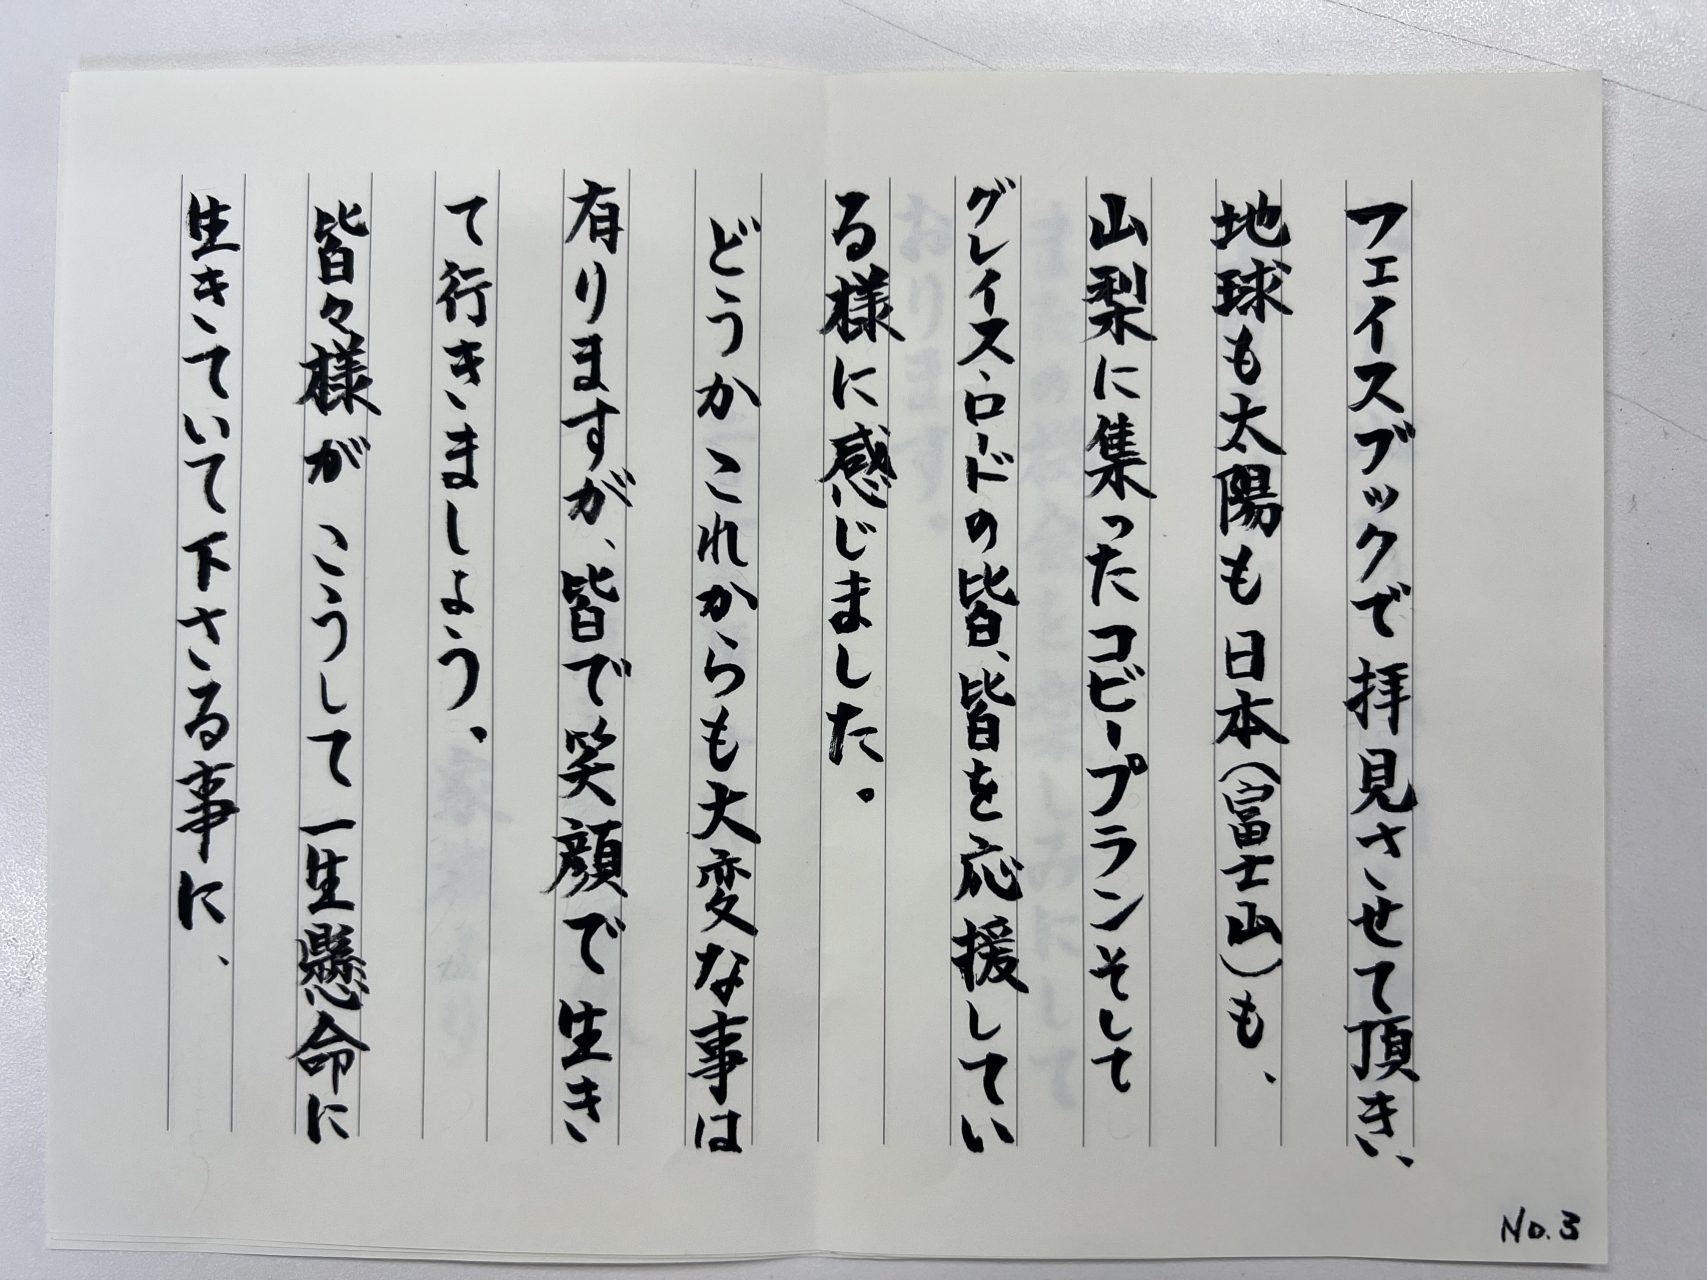 フェイスブックで拝見させて頂き、
地球も太陽も日本(富士山)も、
山梨に集ったコビープランそして
グレイス・ロードの皆、皆を応援してい
る様に感じました。
どうかこれからも大変な事は
有りますが、皆で笑顔で生き
て行きましょう。
皆々様がこうして一生懸命に
生きていて下さる事に、
No.3